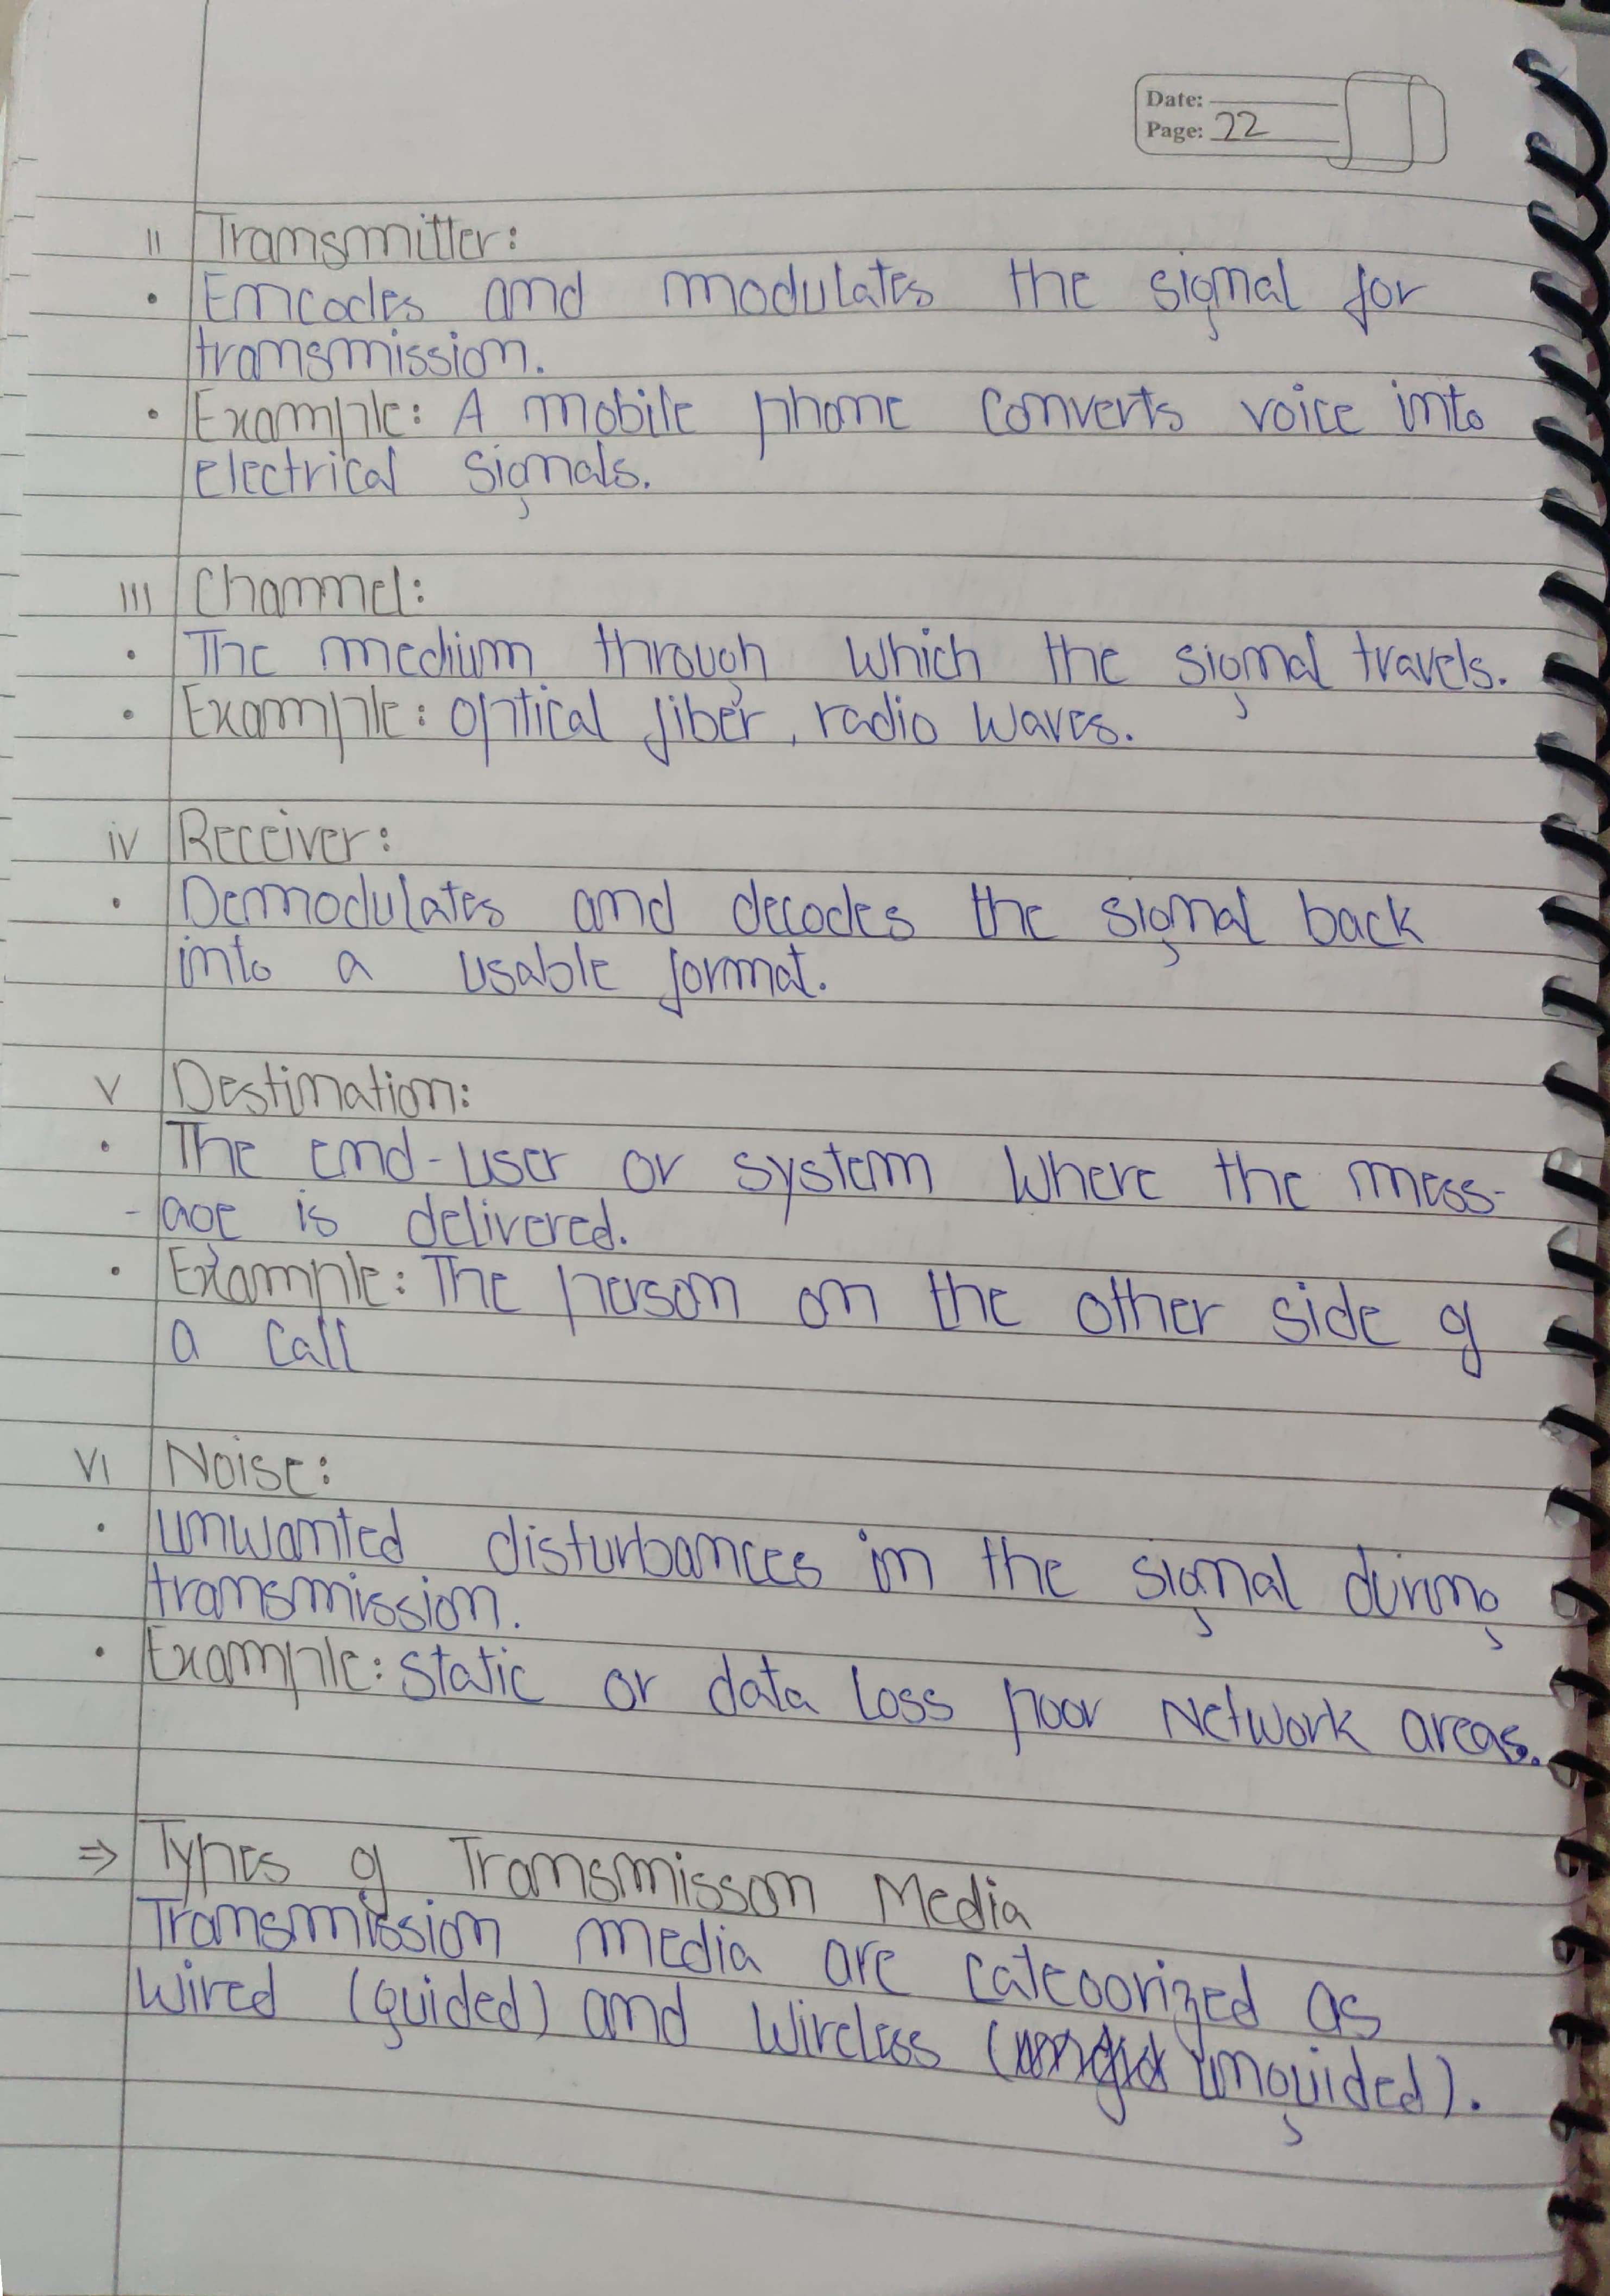 Date:
Page: 22
ii Transmitter:
• Encodes and modulates the signal for
transmission.
• Example: A mobile phone converts voice into
electrical signals.
iii Channel:
• The medium through which the signal travels.
• Example: optical fiber, radio waves.
iv Receiver:
• Demodulates and decodes the signal back
into a usable format.
v Destination:
• The end-user or system where the mess-
-age is delivered.
• Example: The person on the other side of
a call
vi Noise:
• unwanted disturbances in the signal during
transmission.
• Example: static or data loss poor Network areas.
⇒ Types of Transmisson Media
Transmission media are categorized as
wired (guided) and wireless (unguided).